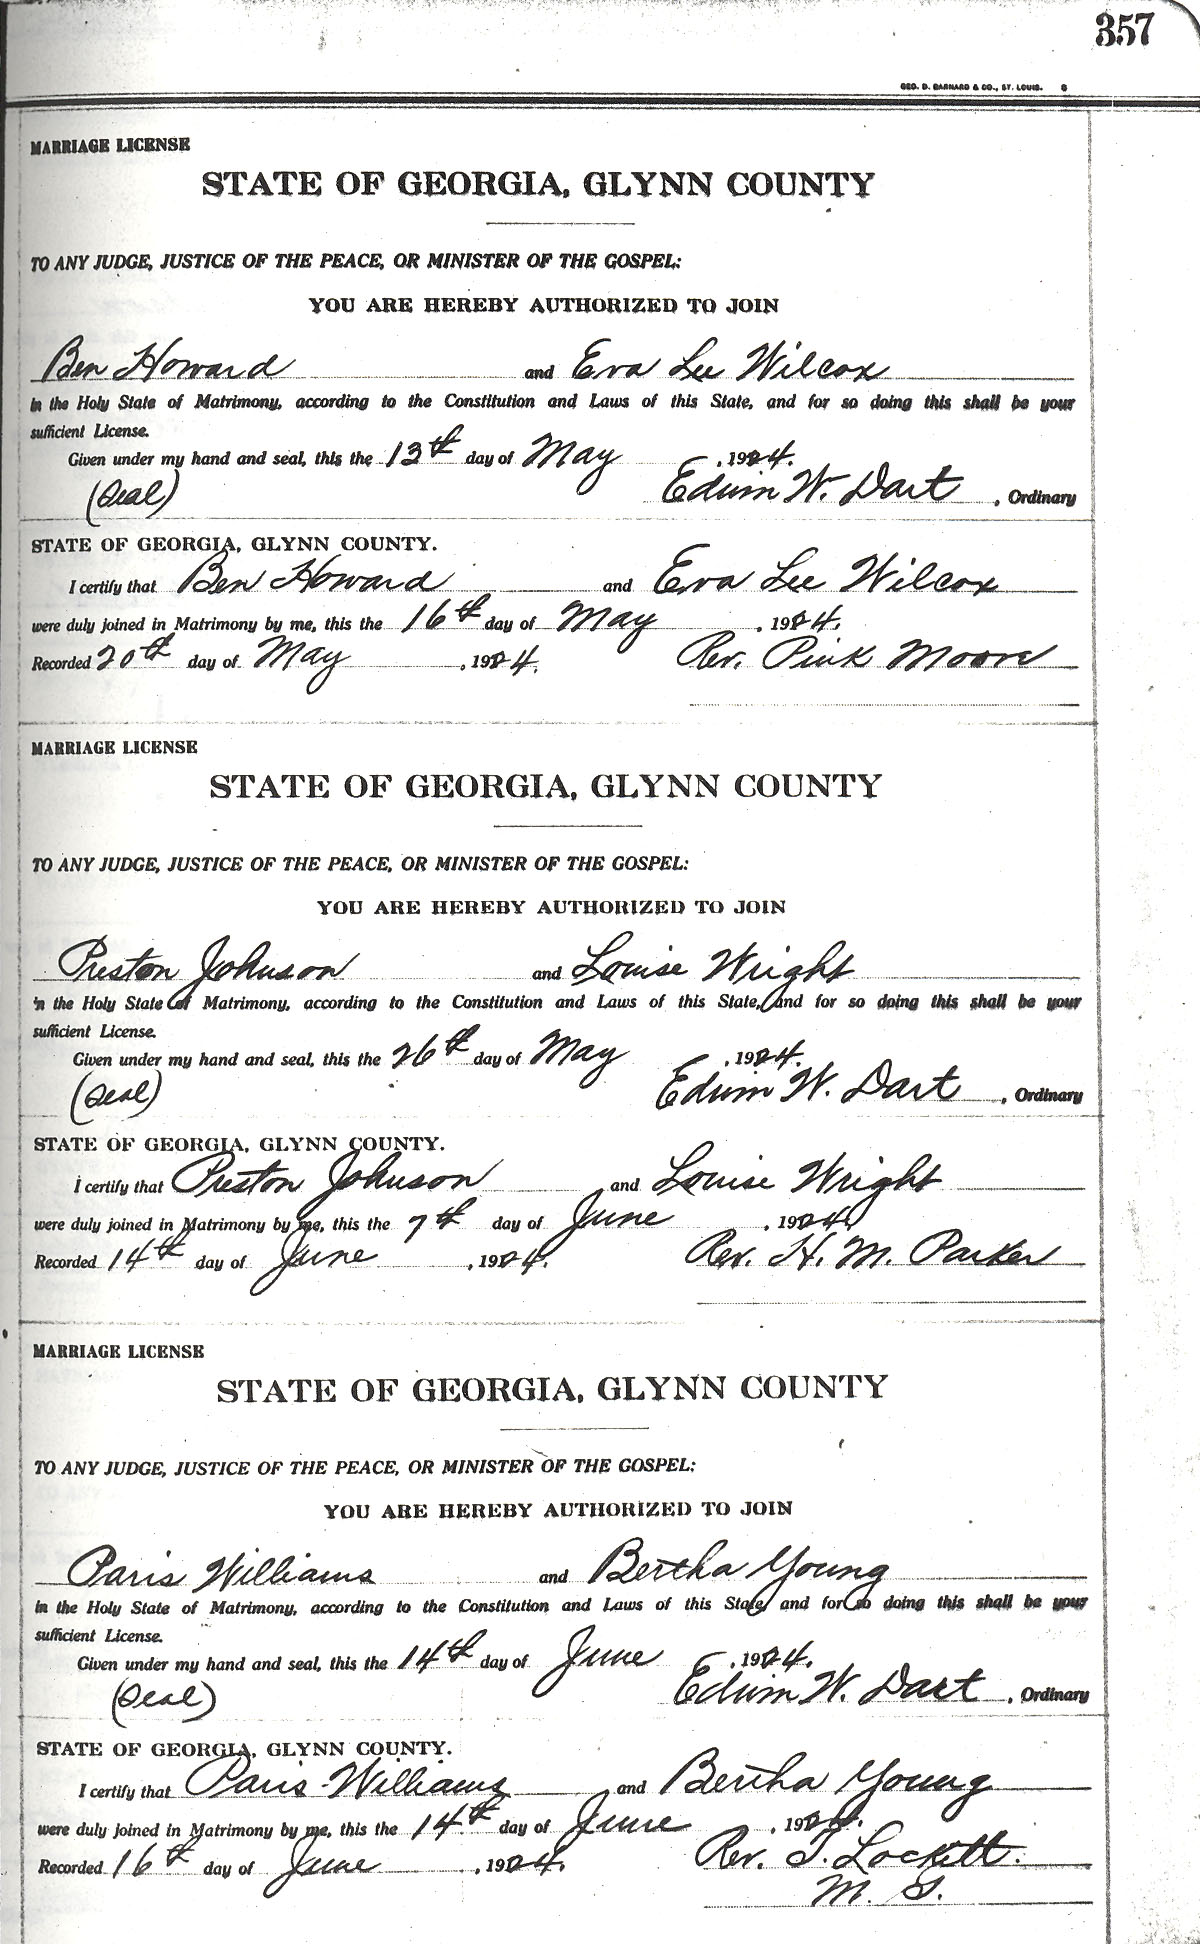 357
GEO. D. BARNARD & CO., ST. LOUIS.
MARRIAGE LICENSE
STATE OF GEORGIA, GLYNN COUNTY
TO ANY JUDGE, JUSTICE OF THE PEACE, OR MINISTER OF THE GOSPEL:
YOU ARE HEREBY AUTHORIZED TO JOIN
Ben Howard and Eva Lee Wilcox
in the Holy State of Matrimony, according to the Constitution and Laws of this State, and for so doing this shall be your
sufficient License.
Given under my hand and seal, this the 13th day of May, 1924.
(Seal) Edwin W. Dart, Ordinary
STATE OF GEORGIA, GLYNN COUNTY.
I certify that Ben Howard and Eva Lee Wilcox
were duly joined in Matrimony by me, this the 16th day of May, 1924.
Recorded 20th day of May, 1924. Rev. Pink Moore
MARRIAGE LICENSE
STATE OF GEORGIA, GLYNN COUNTY
TO ANY JUDGE, JUSTICE OF THE PEACE, OR MINISTER OF THE GOSPEL:
YOU ARE HEREBY AUTHORIZED TO JOIN
Preston Johnson and Louise Wright
in the Holy State of Matrimony, according to the Constitution and Laws of this State, and for so doing this shall be your
sufficient License.
Given under my hand and seal, this the 26th day of May, 1924.
(Seal) Edwin W. Dart, Ordinary
STATE OF GEORGIA, GLYNN COUNTY.
I certify that Preston Johnson and Louise Wright
were duly joined in Matrimony by me, this the 7th day of June, 1924.
Recorded 14th day of June, 1924. Rev. H. M. Parker
MARRIAGE LICENSE
STATE OF GEORGIA, GLYNN COUNTY
TO ANY JUDGE, JUSTICE OF THE PEACE, OR MINISTER OF THE GOSPEL:
YOU ARE HEREBY AUTHORIZED TO JOIN
Paris Williams and Bertha Young
in the Holy State of Matrimony, according to the Constitution and Laws of this State, and for so doing this shall be your
sufficient License.
Given under my hand and seal, this the 14th day of June, 1924.
(Seal) Edwin W. Dart, Ordinary
STATE OF GEORGIA, GLYNN COUNTY.
I certify that Paris Williams and Bertha Young
were duly joined in Matrimony by me, this the 14th day of June, 1924.
Recorded 16th day of June, 1924. Rev. T. Lockett.
M. G.